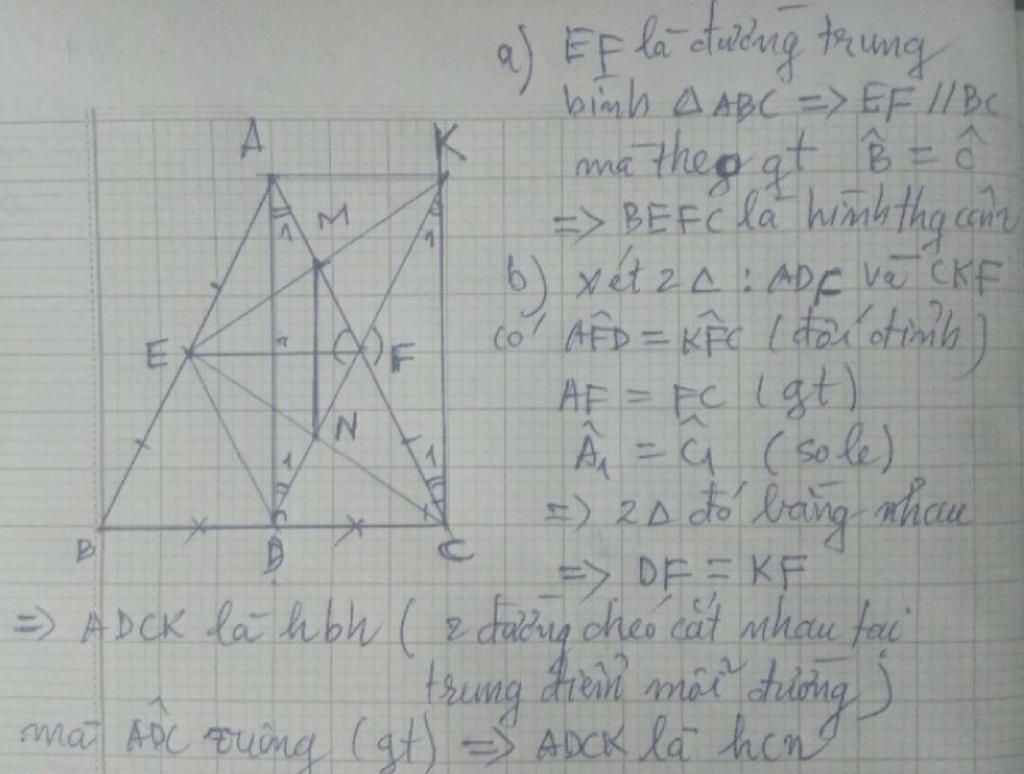 a) EF là đường trung
bình Δ ABC => EF // BC
mà theo gt B̂ = Ĉ
=> BEFC là hình thg cân
b) xét 2 Δ : ADF và CKF
có AF̂D = KF̂C (đối đỉnh)
AF = FC (gt)
Â₁ = Ĉ₁ (sole)
=> 2Δ đó bằng nhau
=> DF = KF
=> ADCK là hbh ( 2 đường chéo cắt nhau tại
trung điểm mỗi đường )
mà AD̂C vuông (gt) => ADCK là hcn
A K
1 M 1
E F
1 N 1
B D C